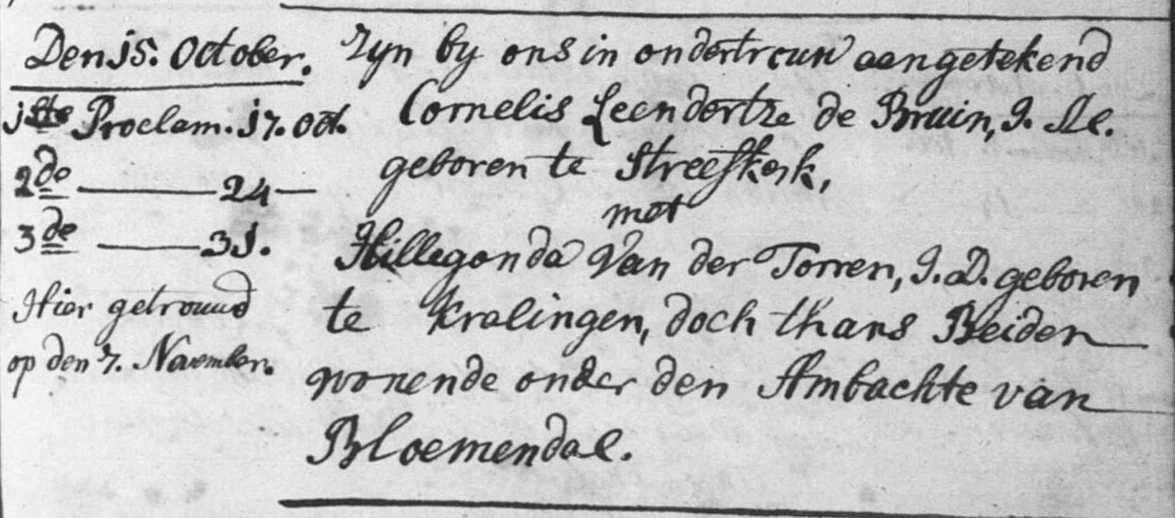 Den 15. October.
1ste Proclam. 17. oct.
2de 24
3de 31.
Hier getrouwd
op den 7. November.
Zyn by ons in ondertrouw aangetekend
Cornelis Leendertze de Bruin, J. M.
geboren te Streefkerk,
met
Hillegonda Van der Torren, J. D. geboren
te Kralingen, doch thans Beiden
wonende onder den Ambachte van
Bloemendal.